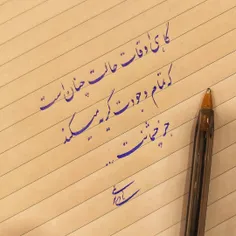 گاهی اوقات حالت چنان است
که تمام وجودت گریه میکند
جز چشمانت ...